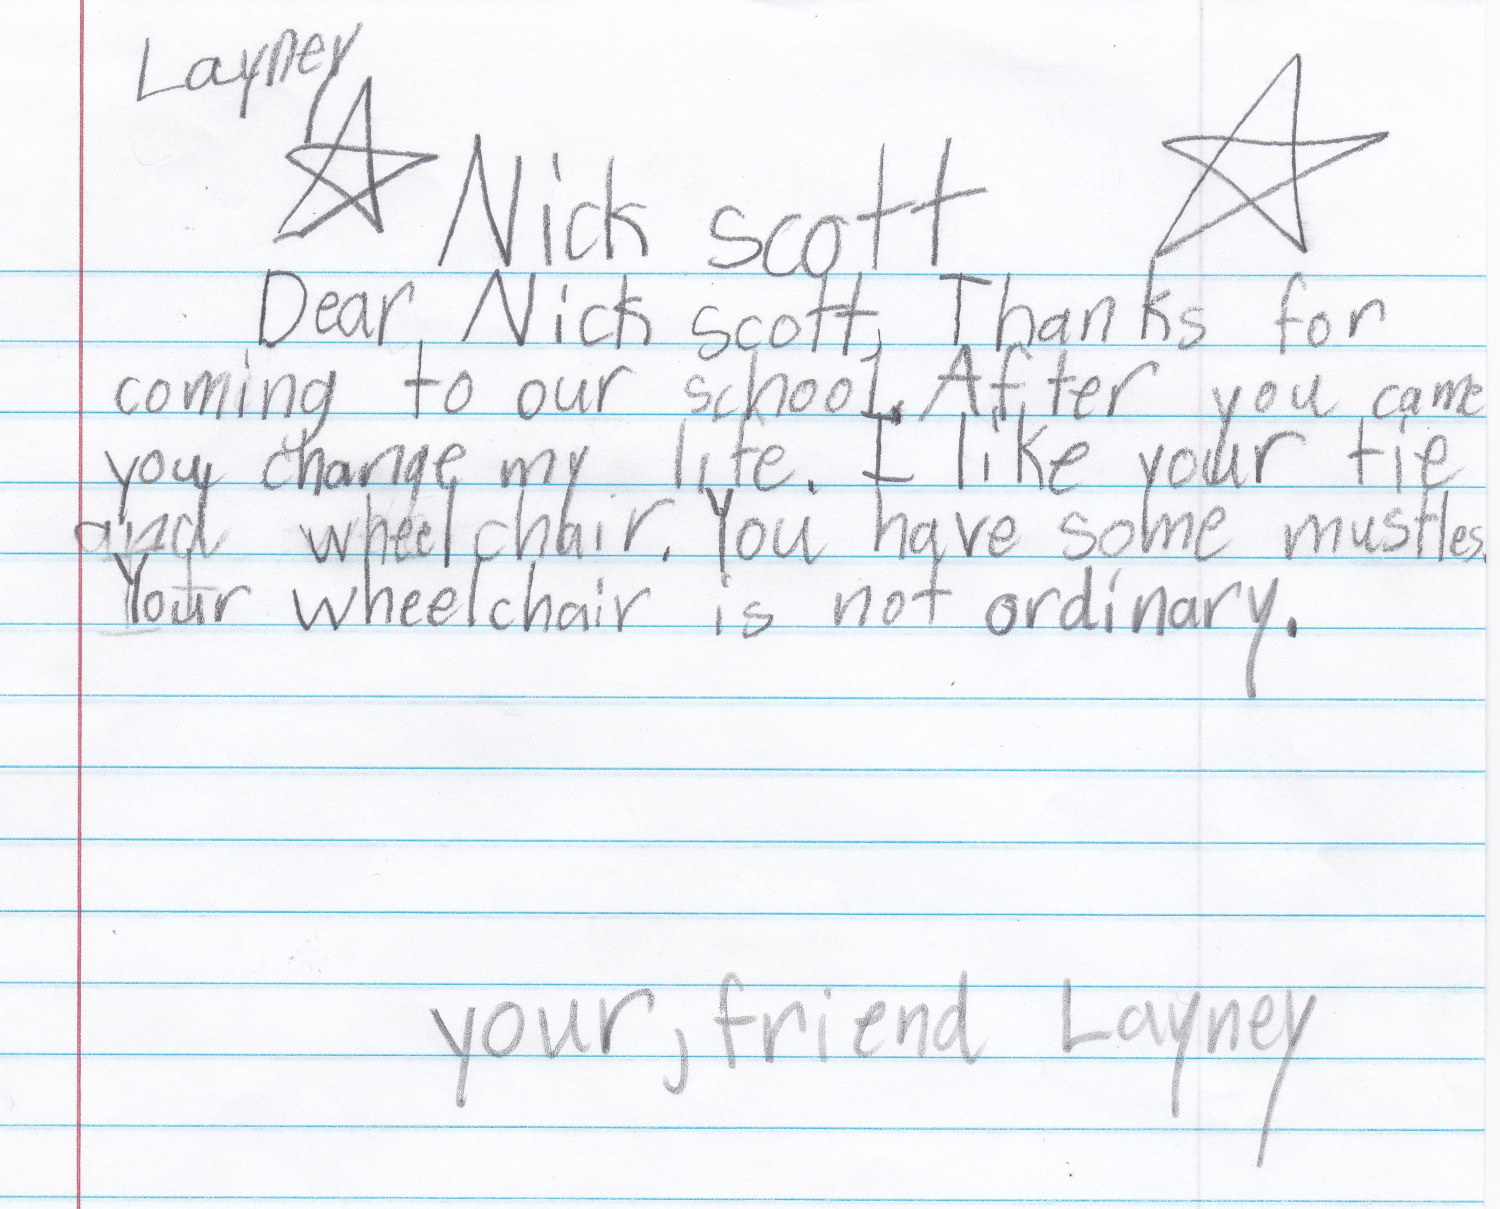 Layney
Nick scott
Dear, Nick scott, Thanks for
coming to our school. After you came
you change my life. I like your tie
and wheelchair. You have some mustles.
Your wheelchair is not ordinary.
your, friend Layney